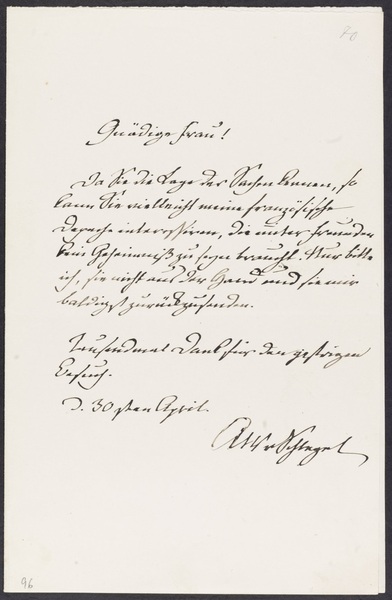 70
Gnädige Frau!
Da Sie die Lage der Sachen kennen, so
kann Sie vielleicht meine französische
Depeche interessiren, die unter Freunden
kein Geheimniß zu seyn braucht. Nur bitte
ich, sie nicht aus der Hand und sie mir
baldigst zurückzusenden.
Tausendmal Dank für den gestrigen
Besuch.
d. 30sten April.
AW v Schlegel
96